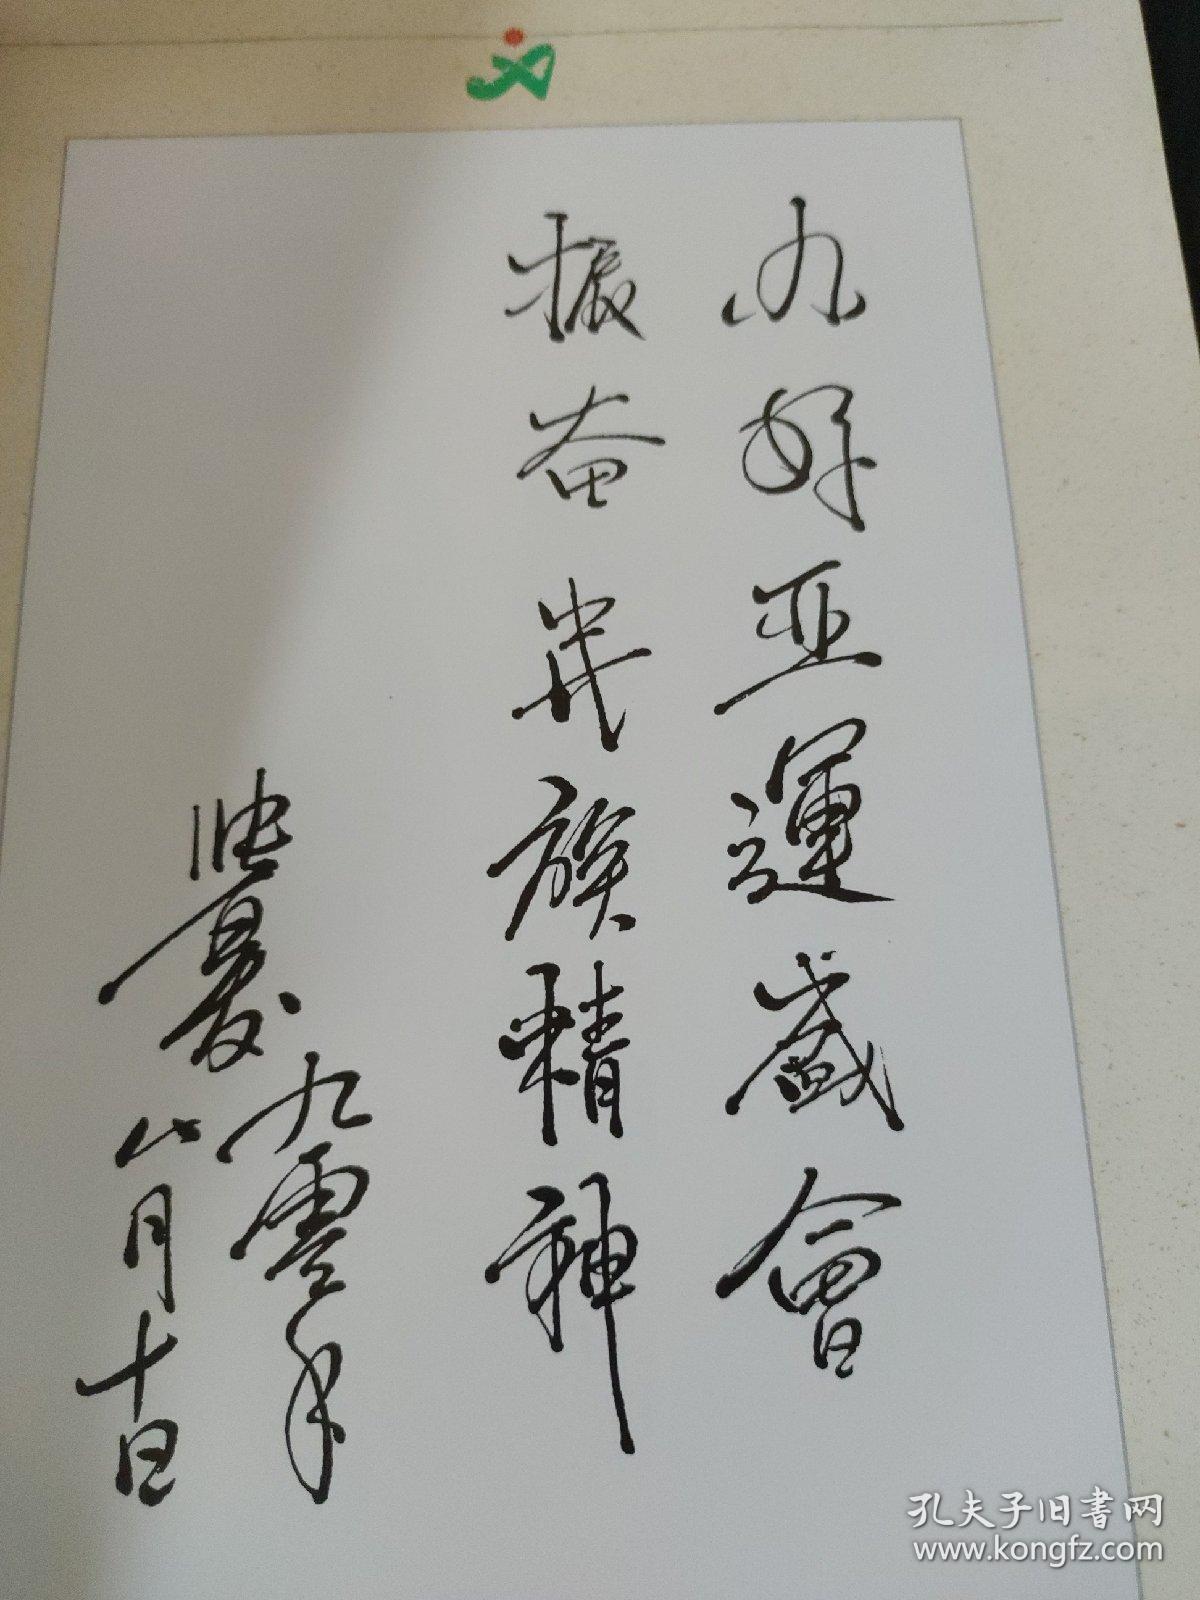 办好亚運盛會
振奋民族精神
九零年
八月十日
孔夫子旧书网
www.kongfz.com